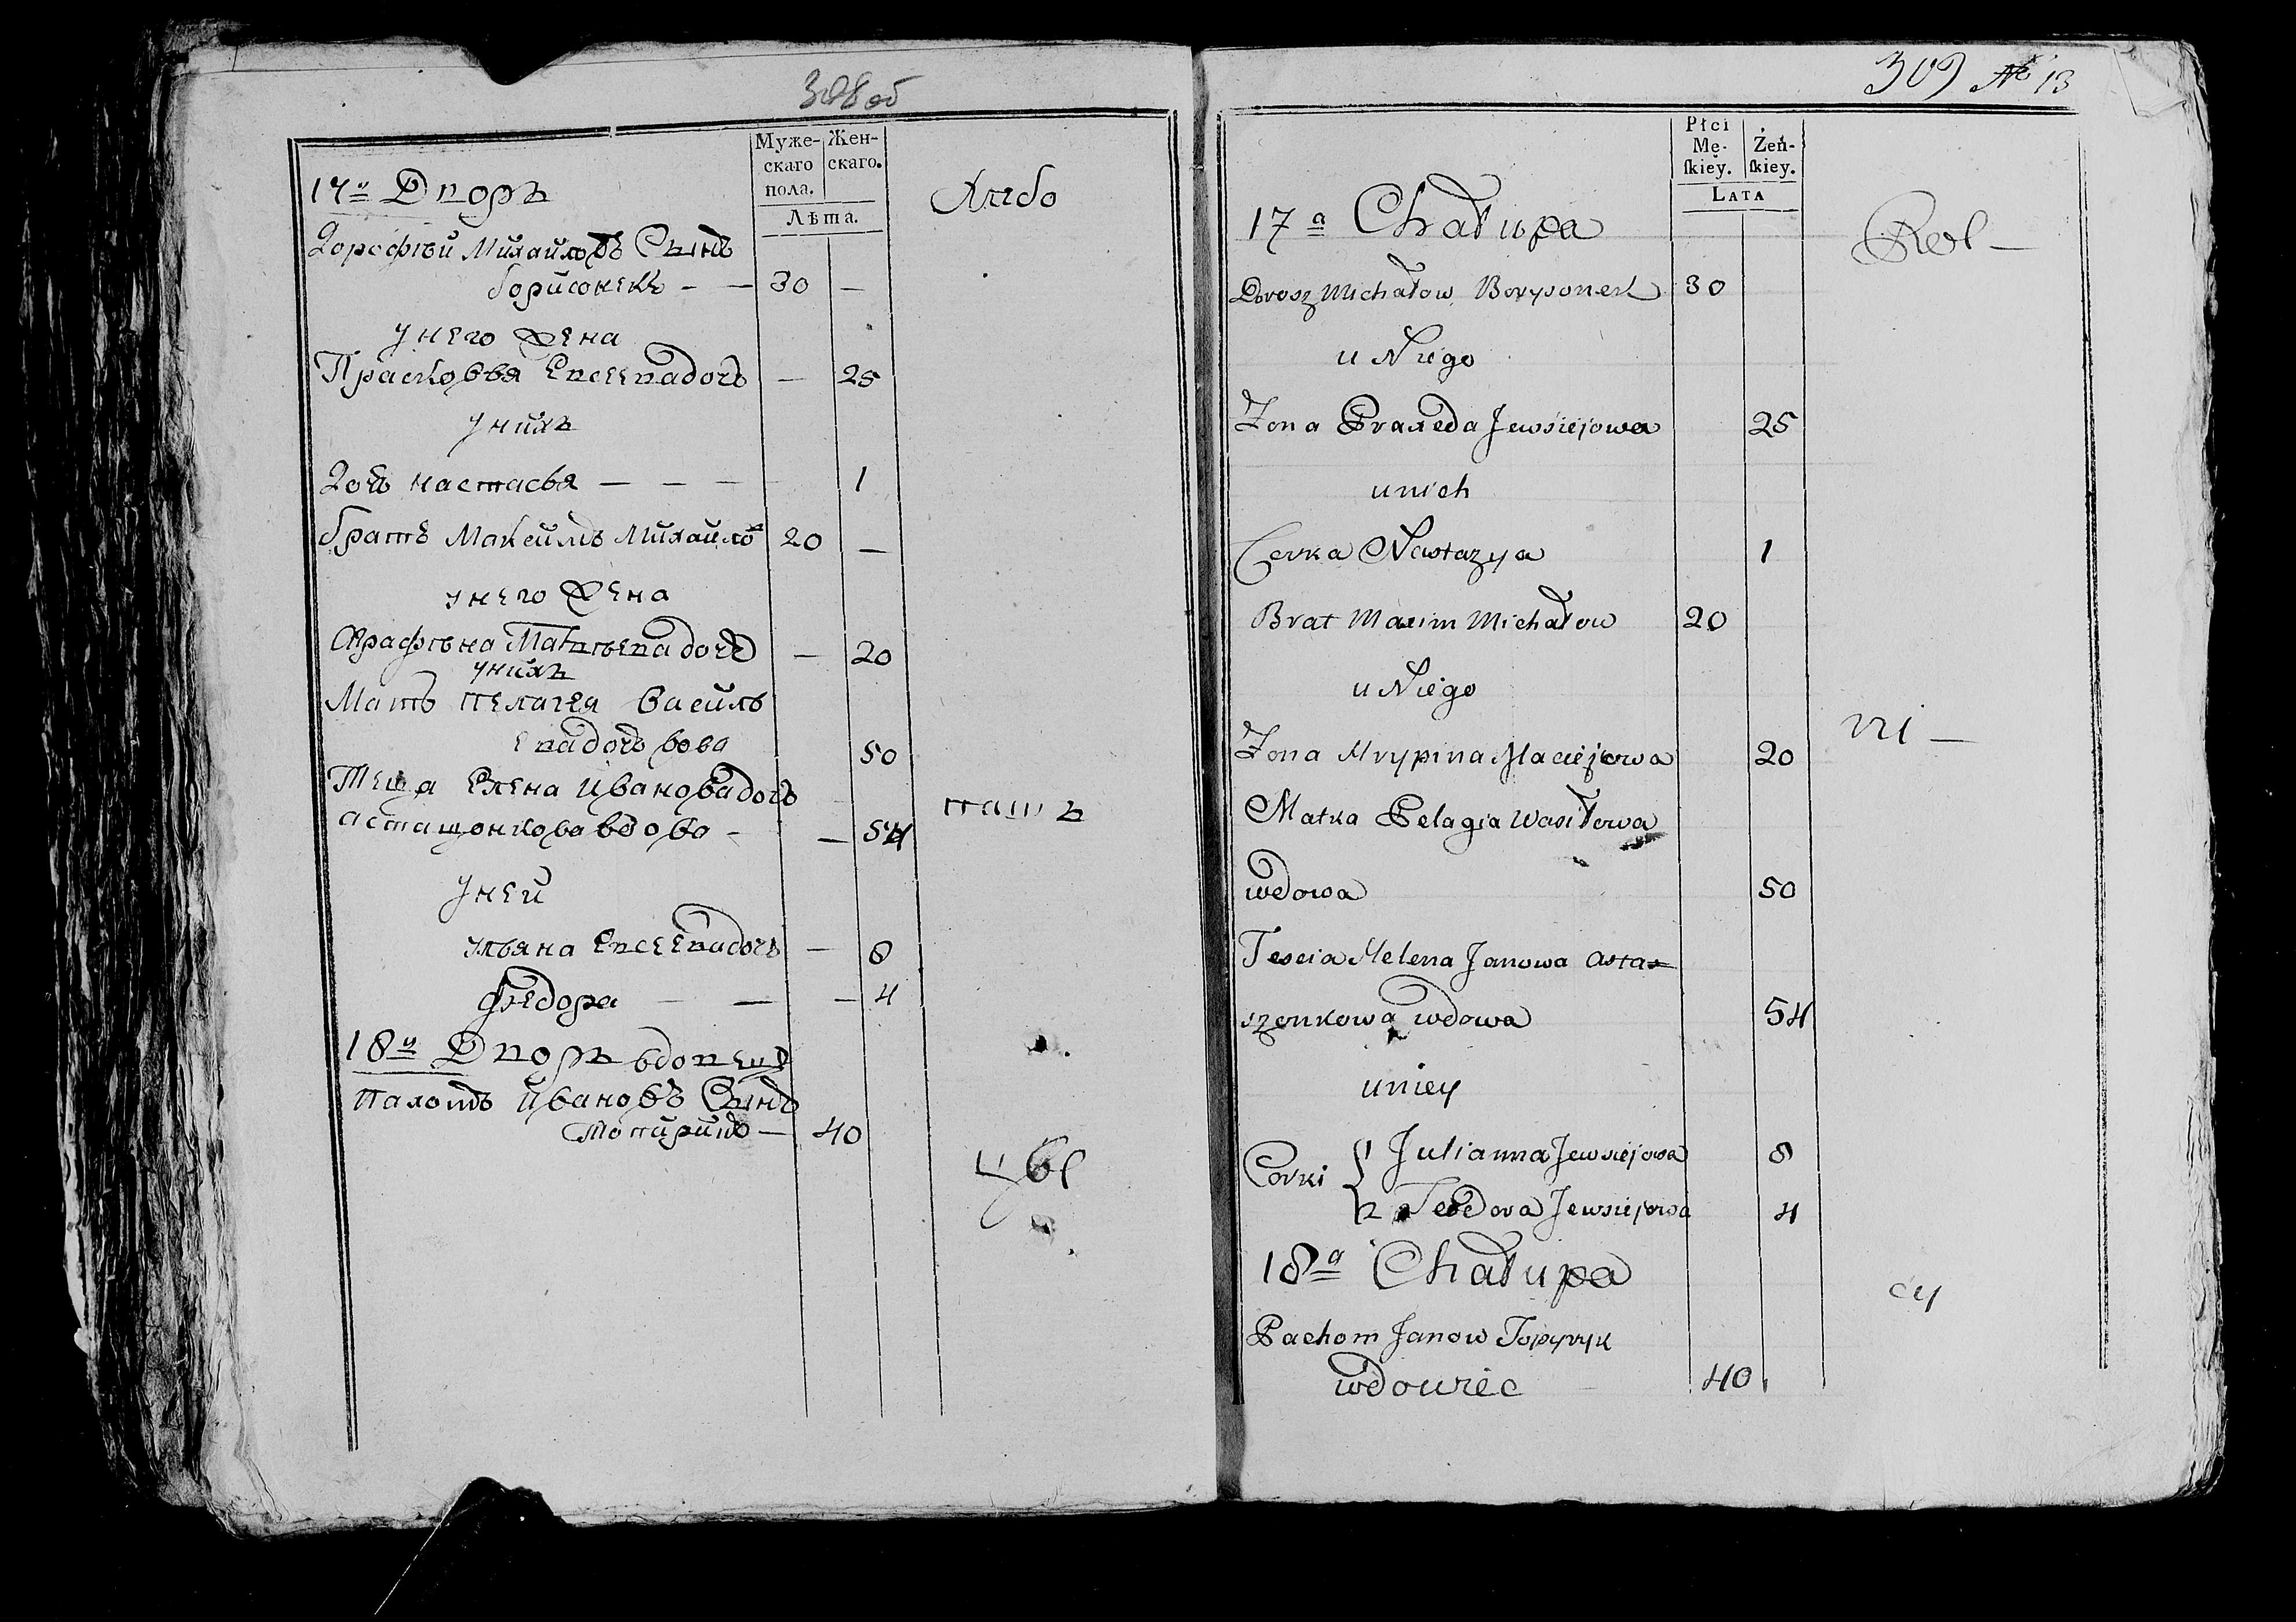 308 об
Муже-
скаго
пола.
Жен-
скаго.
Лѣта.
17й Дворъ
Хлѣбо
Дорофѣй Михайловъ Сынъ
борисонекъ - — 30 —
у него Жена
Прасковья Евсеевадочь — 25
у нихъ
Дочь настасья — — — 1
братъ Максимъ Михайло 20 —
у него Жена
Матвѣевадочь — 20
у нихъ
Мать пелагея Василь
евадочь вова 50
Теща Елена Ивановадочь
асташонкова вдова - — 54
пашъ
у ней
ульяна Евсеевадочь — 8
фѣедора — — — 4
18й Дворъ вдовецъ
пахомъ Ивановъ Сынъ
Топирикъ — 40
цы
309 № 13
Płci
Mę-
skiey.
Żeń-
skiey.
LATA
17a Chałupa
Rol —
Dorosz Michałow Borysonek 30
u Niego
Żona Praxeda Jewsiejowa 25
u nich
Corka Nastazya 1
Brat Maxim Michałow 20
u Niego
ni —
Żona Arypina Maciejowa 20
Matka Pelagia Wasilowa
wdowa 50
Tescia Helena Janowa Asta=
szonkowa wdowa 54
u niey
Corki { Julianna Jewsiejowa 8
Teodora Jewsiejowa 4
18a Chałupa
cy
Pachom Janow Topyryk
wdowiec 40